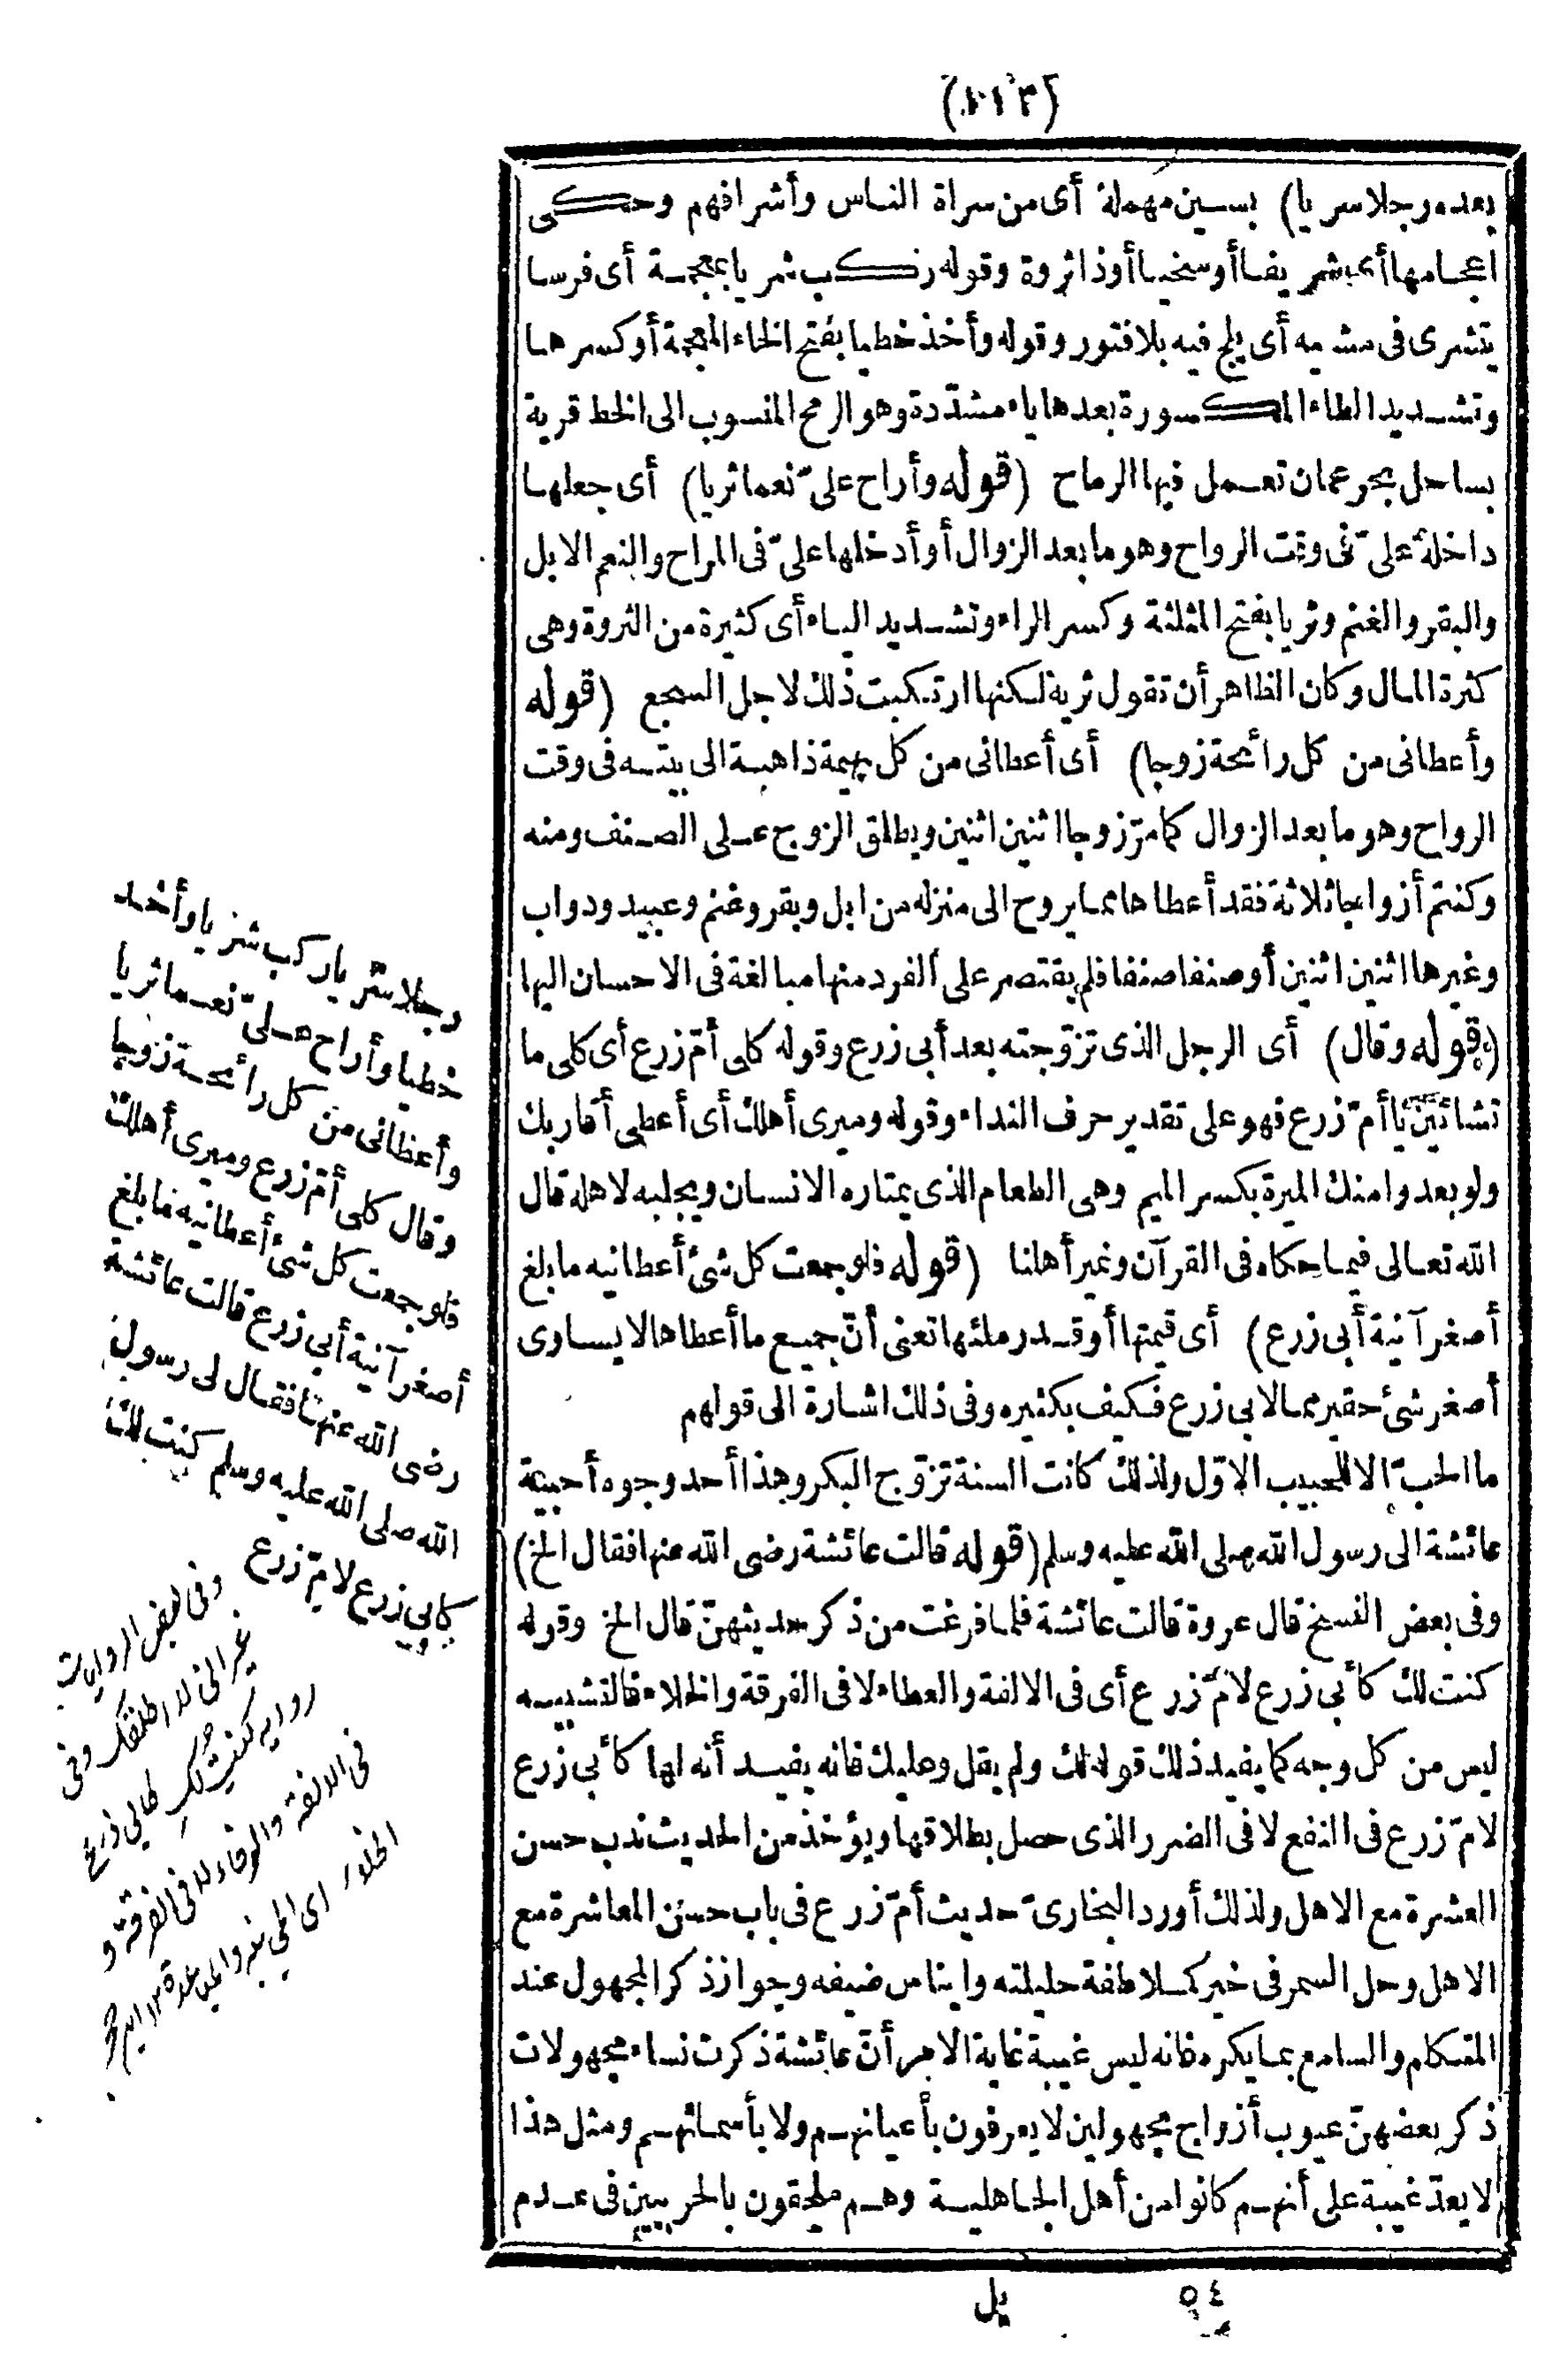 (١١٣)
بعده رجلا سريا) بسين مهملة أى من سراة الناس وأشرافهم وحكى
اعجامها أى شريفا أو سخيا أو ذا ثروة وقوله ركب شريا بمعجمة أى فرسا
يتشرى فى مشيه أى يلج فيه بلا فتور وقوله وأخذ خطيا بفتح الخاء المعجمة أو كسرها
وتشديد الطاء المكسورة بعدها ياء مشدّدة وهو الرمح المنسوب الى الخط قرية
بساحل بحر عمان تعمل فيها الرماح (قوله وأراح علىّ نعما ثريا) أى جعلها
داخلة علىّ فى وقت الرواح وهو ما بعد الزوال أو أدخلها علىّ فى المراح والنعم الابل
والبقر والغنم وثريا بفتح المثلثة وكسر الراء وتشديد الياء أى كثيرة من الثروة وهى
كثرة المال وكان الظاهر أن تقول ثرية لكنها ارتكبت ذلك لاجل السجع (قوله
وأعطانى من كل رائحة زوجا) أى أعطانى من كل بهيمة ذاهبة الى بيته فى وقت
الرواح وهو ما بعد الزوال كما مرّ زوجا اثنين اثنين ويطلق الزوج على الصنف ومنه
وكنتم أزواجا ثلاثة فقد أعطاها مما يروح الى منزله من ابل وبقر وغنم وعبيد ودواب
وغيرها اثنين اثنين أو صنفا صنفا فلم يقتصر على الفرد منها مبالغة فى الاحسان اليها
(قوله وقال) أى الرجل الذى تزوّجته بعد أبى زرع وقوله كلى أمّ زرع أى كلى ما
تشائين يا أمّ زرع فهو على تقدير حرف النداء وقوله وميرى أهلك أى أعطى أقاربك
ولو بعدوا منك الميرة بكسر الميم وهى الطعام الذى يمتاره الانسان ويجلبه لاهله قال
الله تعالى فيما حكاه فى القرآن ونمير أهلنا (قوله فلو جمعت كل شئ أعطانيه ما بلغ
أصغر آنية أبى زرع) أى قيمتها أو قدر ملئها تعنى أنّ جميع ما أعطاها لا يساوى
أصغر شئ حقير مما لابى زرع فكيف بكثيره وفى ذلك اشارة الى قولهم
ما الحبّ الا للحبيب الاوّل ولذلك كانت السنة تزوّج البكر وهذا أحد وجوه أحبية
عائشة الى رسول الله صلى الله عليه وسلم (قوله قالت عائشة رضى الله عنها فقال الخ)
وفى بعض النسخ قال عروة قالت عائشة فلما فرغت من ذكر حديثهنّ قال الخ وقوله
كنت لك كأبى زرع لامّ زرع أى فى الالفة والعطاء لا فى الفرقة والخلاء فالتشبيه
ليس من كل وجه كما يفيد ذلك قوله لك ولم يقل وعليك فانه يفيد أنه لها كأبى زرع
لامّ زرع فى النفع لا فى الضرر الذى حصل بطلاقها ويؤخذ من الحديث ندب حسن
العشرة مع الاهل ولذلك أورد البخارىّ حديث أمّ زرع فى باب حسن المعاشرة مع
الاهل وحل السمر فى خير كملاطفة حليلته وايناس ضيفه وجواز ذكر المجهول عند
المتكلم والسامع بما يكره فانه ليس غيبة غاية الامر أنّ عائشة ذكرت نساء مجهولات
ذكر بعضهنّ عيوب أزواج مجهولين لا يعرفون بأعيانهم ولا بأسمائهم ومثل هذا
لا يعدّ غيبة على أنهم كانوا من أهل الجاهلية وهم ملحقون بالحربيين فى عدم
٥٤
يل
رجلا سريا ركب شريا وأخذ
خطيا وأراح علىّ نعما ثريا
وأعطانى من كل رائحة زوجا
وقال كلى أمّ زرع وميرى أهلك
فلو جمعت كل شئ أعطانيه ما بلغ
أصغر آنية أبى زرع قالت عائشة
رضى الله عنها فقال لى رسول
الله صلى الله عليه وسلم كنت لك
كأبى زرع لامّ زرع
وفى بعض الروايات
غير انى لا اطلقك وفى
رواية كنت لك كابي زرع
فى الالفة والوفاء لا فى الفرقة و
الخلاء اى